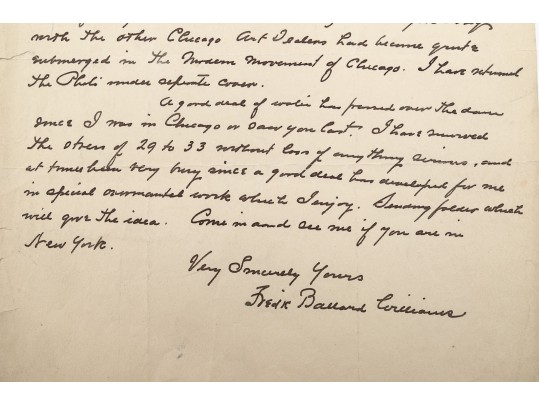 with the other Chicago Art Dealers had become quite
submerged in the Modern Movement of Chicago. I have returned
the Photo under seperate cover.
A good deal of water has passed over the dam
since I was in Chicago or saw you last. I have survived
the stress of 29 to 33 without loss of anything serious, and
at times been very busy since a good deal has developed for me
in special overmantel work which I enjoy. Sending folder which
will give the idea. Come in and see me if you are in
New York.
Very Sincerely Yours
Fredk Ballard Williams